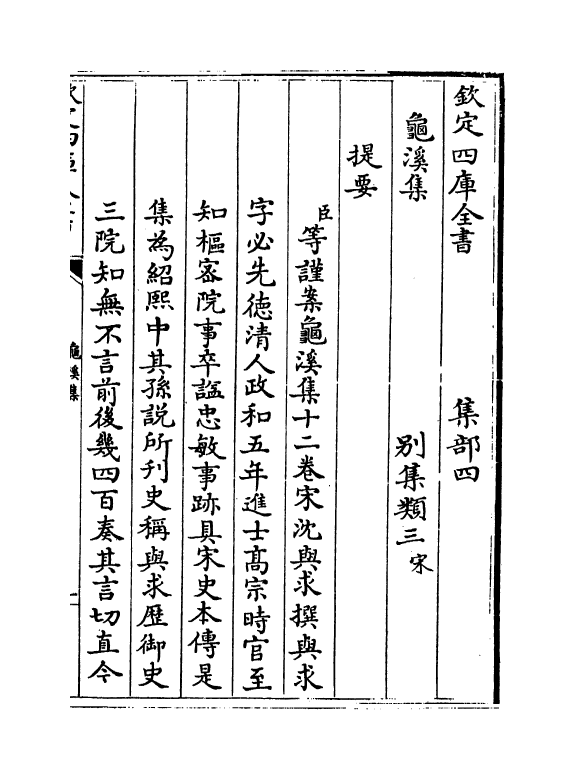 欽定四庫全書　集部四
龜溪集　別集類三宋
提要
臣等謹案龜溪集十二卷宋沈與求撰與求
字必先德清人政和五年進士髙宗時官至
知樞密院事卒諡忠敏事跡具宋史本傳是
集為紹熙中其孫說所刋史稱與求歴御史
三院知無不言前後幾四百奏其言切直今
龜溪集
一